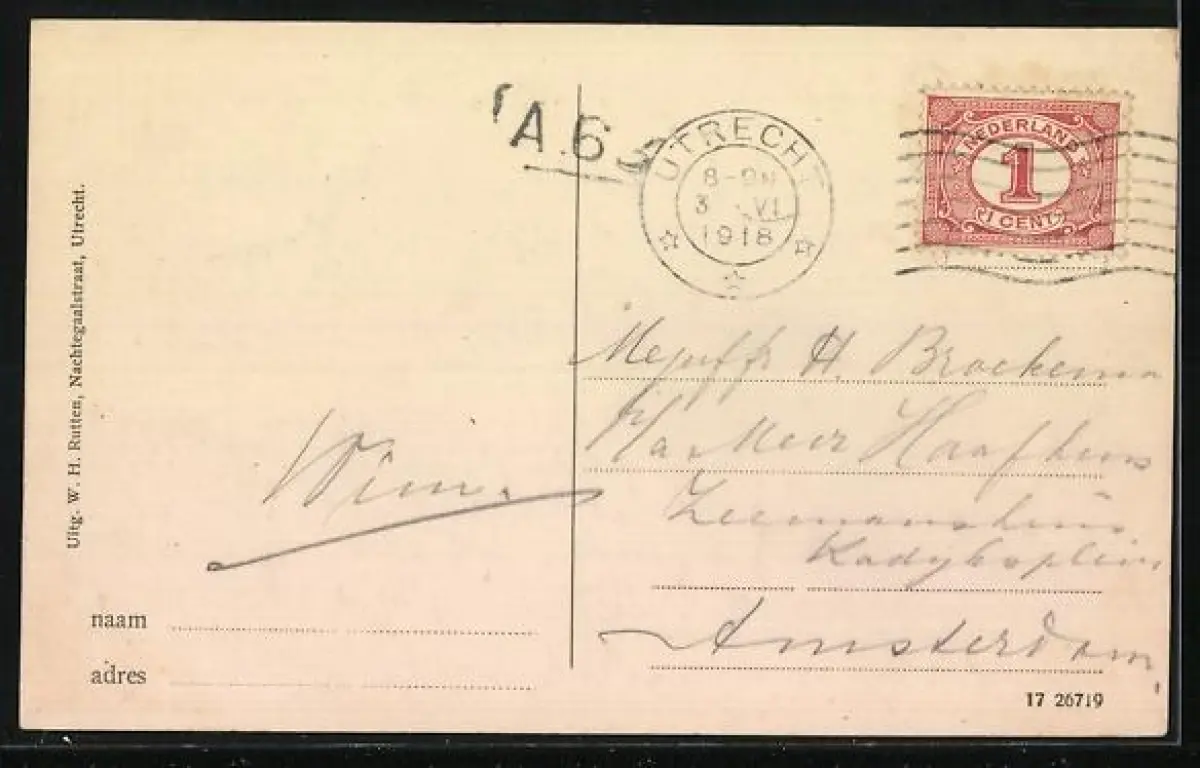 A.6
UTRECHT
8-9N
3 VI
1918
NEDERLAND
1
1 CENT
Mejuffr H. Broekema
p/a Meir Haafkens
Zeemanshuis
Kadyksplein
Amsterdam
Wim.
naam
adres
Uitg. W. H. Rutten, Nachtegaalstraat, Utrecht.
17 26719